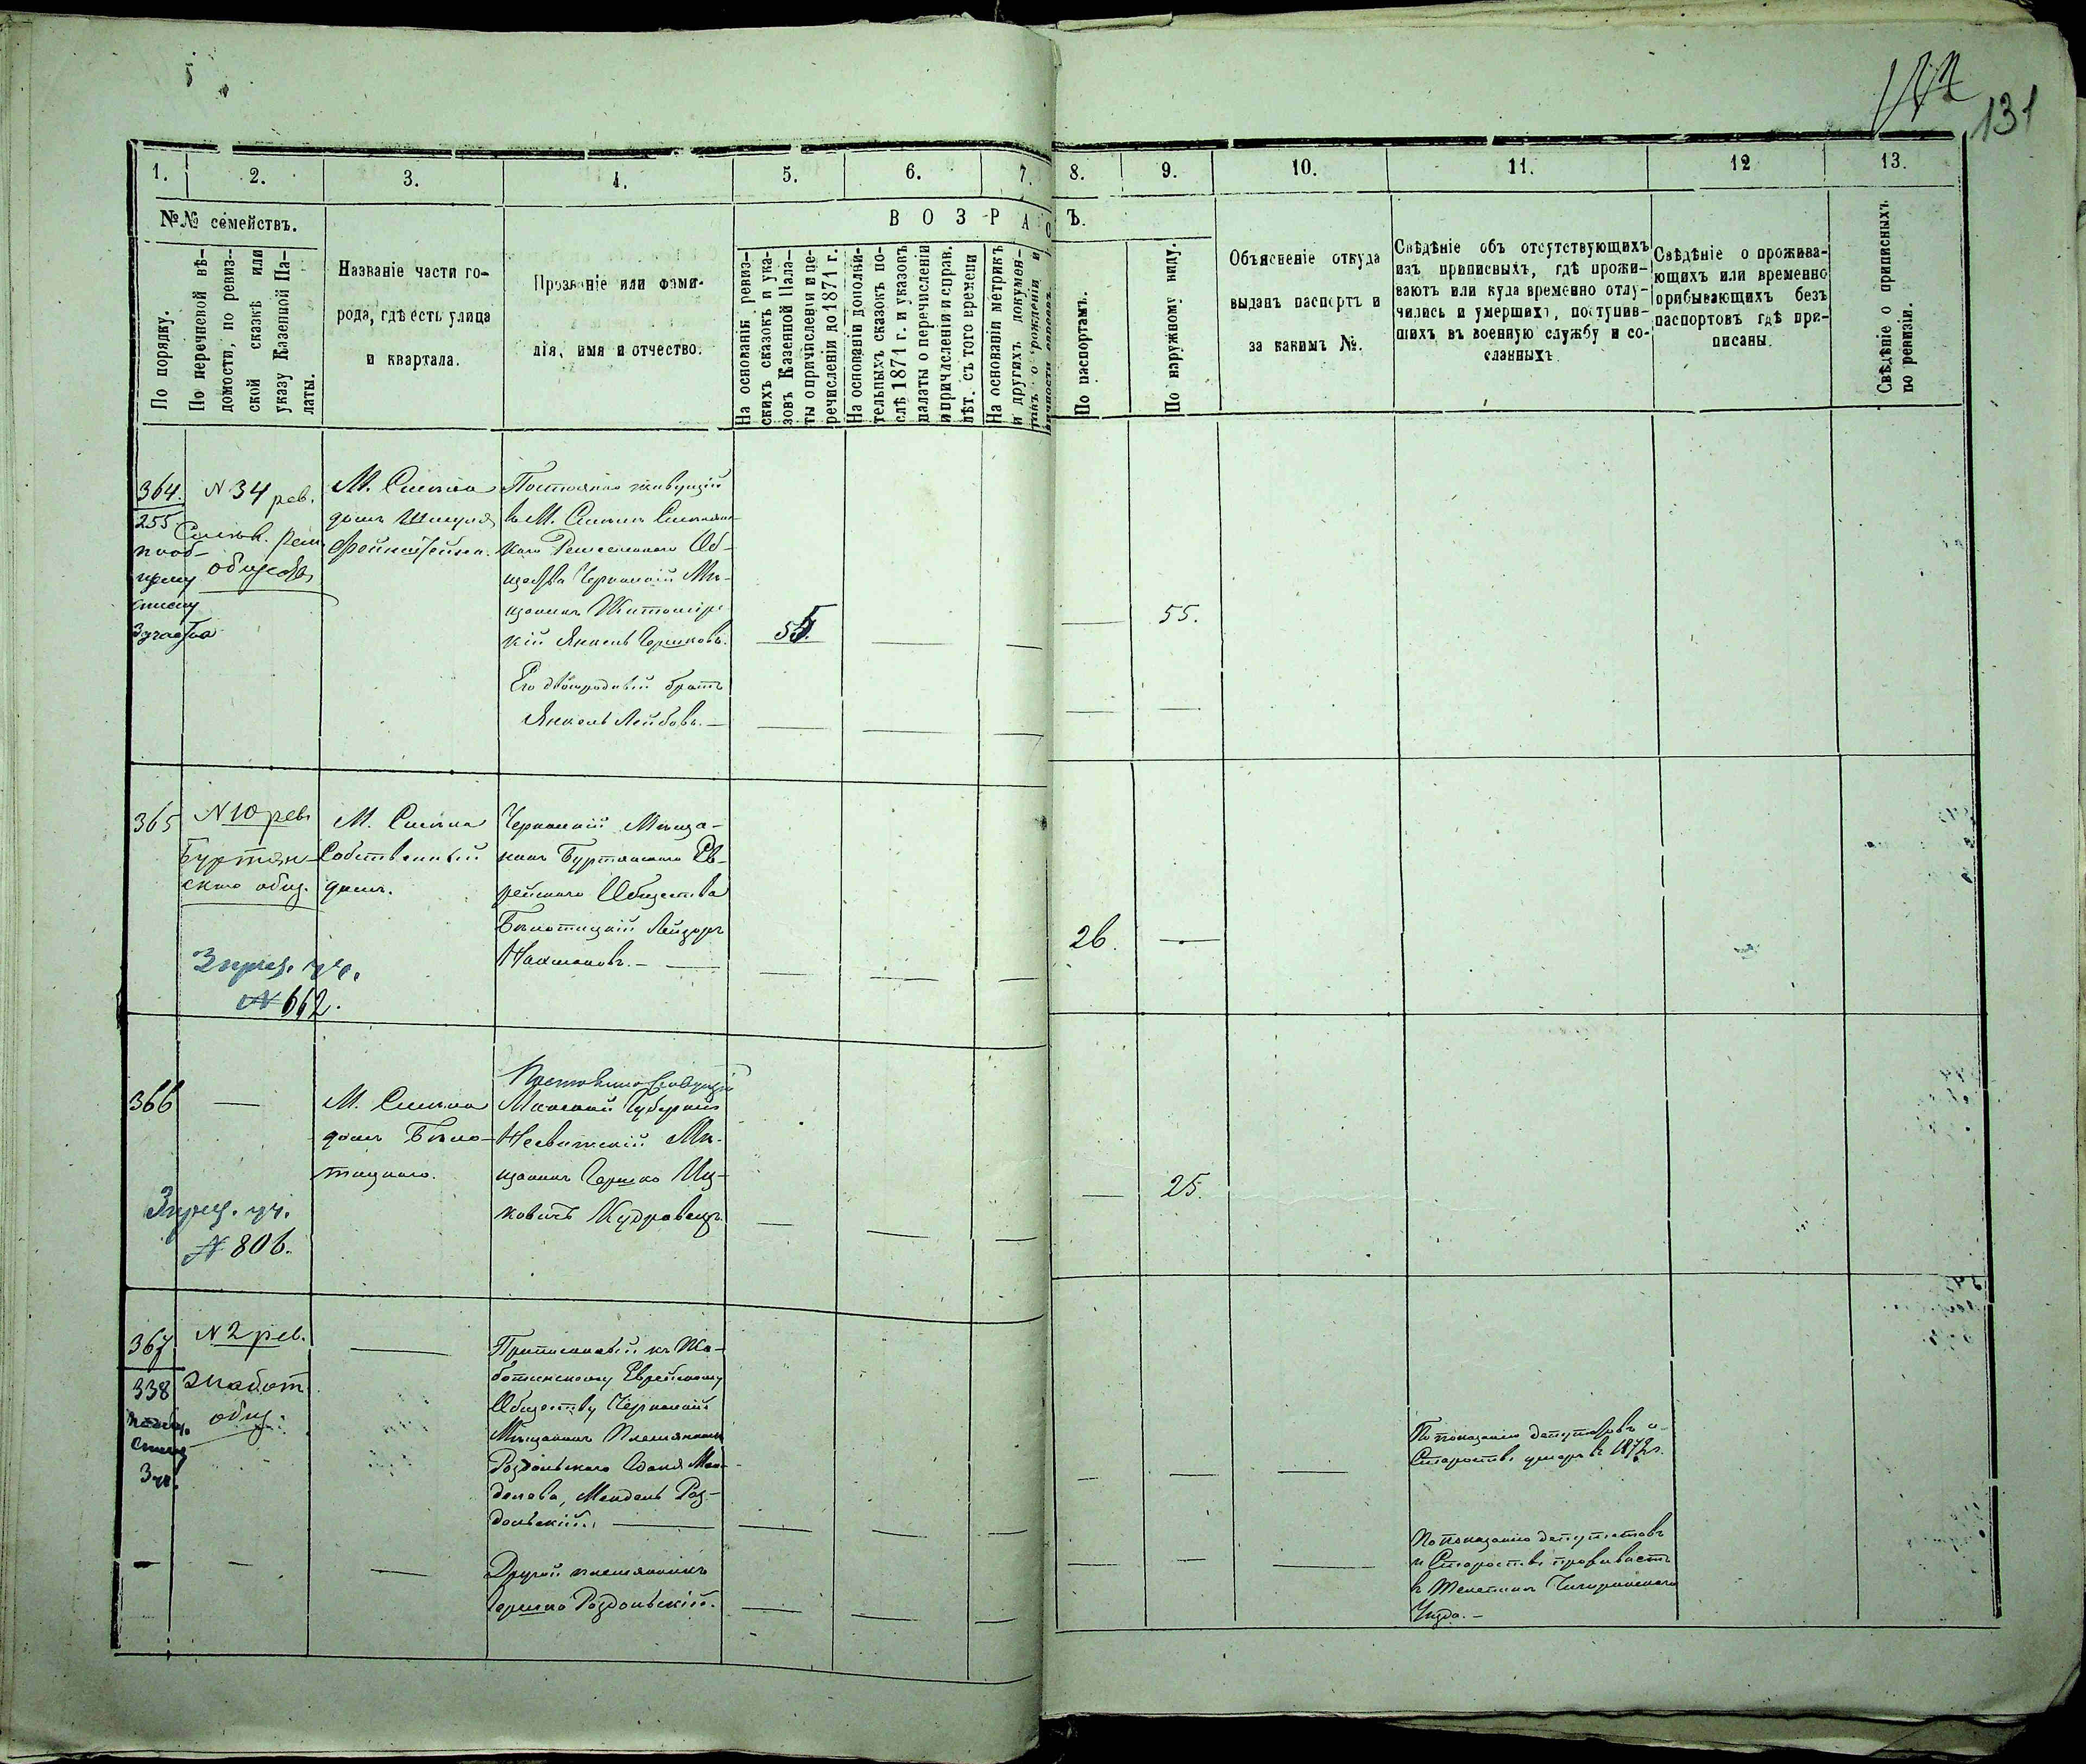 131
1.
2.
3.
4.
5.
6.
7.
8.
9.
10.
11.
12
13.
№№ семействъ.
По порядку.
По перечневой вѣ-
домости, по ревиз-
ской сказкѣ или
указу Казенной Па-
латы.
Названіе части го-
рода, гдѣ есть улица
и квартала.
Прозваніе или фами-
лія, имя и отчество.
ВОЗРАС
Ъ.
На основаніи ревиз-
скихъ сказокъ и ука-
зовъ Казенной Пала-
ты о причисленіи и пе-
речисленіи до 1871 г.
На основаніи дополни-
тельныхъ сказокъ по-
слѣ 1871 г. и указовъ
палаты о перечисленіи
и причисленіи и справ.
лѣт. съ того времени
На основаніи метрикъ
и другихъ докумен-
товъ о рожденіи и
По паспортамъ.
По наружному виду.
Объясненіе откуда
выданъ паспортъ и
за какимъ №.
Свѣдѣніе объ отсутствующихъ
изъ приписныхъ, гдѣ прожи-
ваютъ или куда временно отлу-
чились и умершихъ, поступив-
шихъ въ военную службу и со-
сланныхъ.
Свѣдѣніе о прожива-
ющихъ или временно
прибывающихъ безъ
паспортовъ гдѣ при-
писаны.
Свѣдѣніе о приписныхъ
по ревизіи.
364.
255
по об-
щему
списку
3 участка
N 34 рев.
Смѣл. рем.
общества
М. Смѣла
домъ Шмуля
Постоянно живущій
въ М. Смѣлѣ Смѣлян-
скаго Ремесленнаго Об-
щества Черкаскій Мѣ-
щанинъ Житомірс
кій Янкель Гершковъ.
55.
55.
Его двоюродный братъ
Янкель Лейбовъ. —
365
N 10 рев.
Буртян-
скаго общ.
3 приз. уч.
N 662.
М. Смѣла
Собственный
домъ.
Черкаскій Мѣща-
нинъ Буртянскаго Ев-
рейскаго Общества
Бѣлотицкій Лейзоръ
Нахмановъ. —
26.
366
—
3 приз. уч.
N 806.
М. Смѣла
домъ Бѣло-
тицкаго.
Постоянно живущій
Минской Губерніи
Несвижскій Мѣ-
щанинъ Гершко Иц-
ковичъ Кудравецъ.
25.
367
338
по общ.
списку
3 уч.
N 2 рев.
Жабот.
общ.
Приписанный къ Жа-
ботинскому Еврейскому
Обществу Черкаскій
Мѣщанинъ Племянникъ
Роздольскаго Мен-
делева, Мендель Роз-
дольскій.
По показанію депутатовъ и
Старостъ умеръ въ 1872 г.
Другой племянникъ
Гершко Роздольскій.
По показанію депутатовъ
и Старостъ проживаетъ
въ Телепинѣ Чигиринскаго
Уѣзда. —